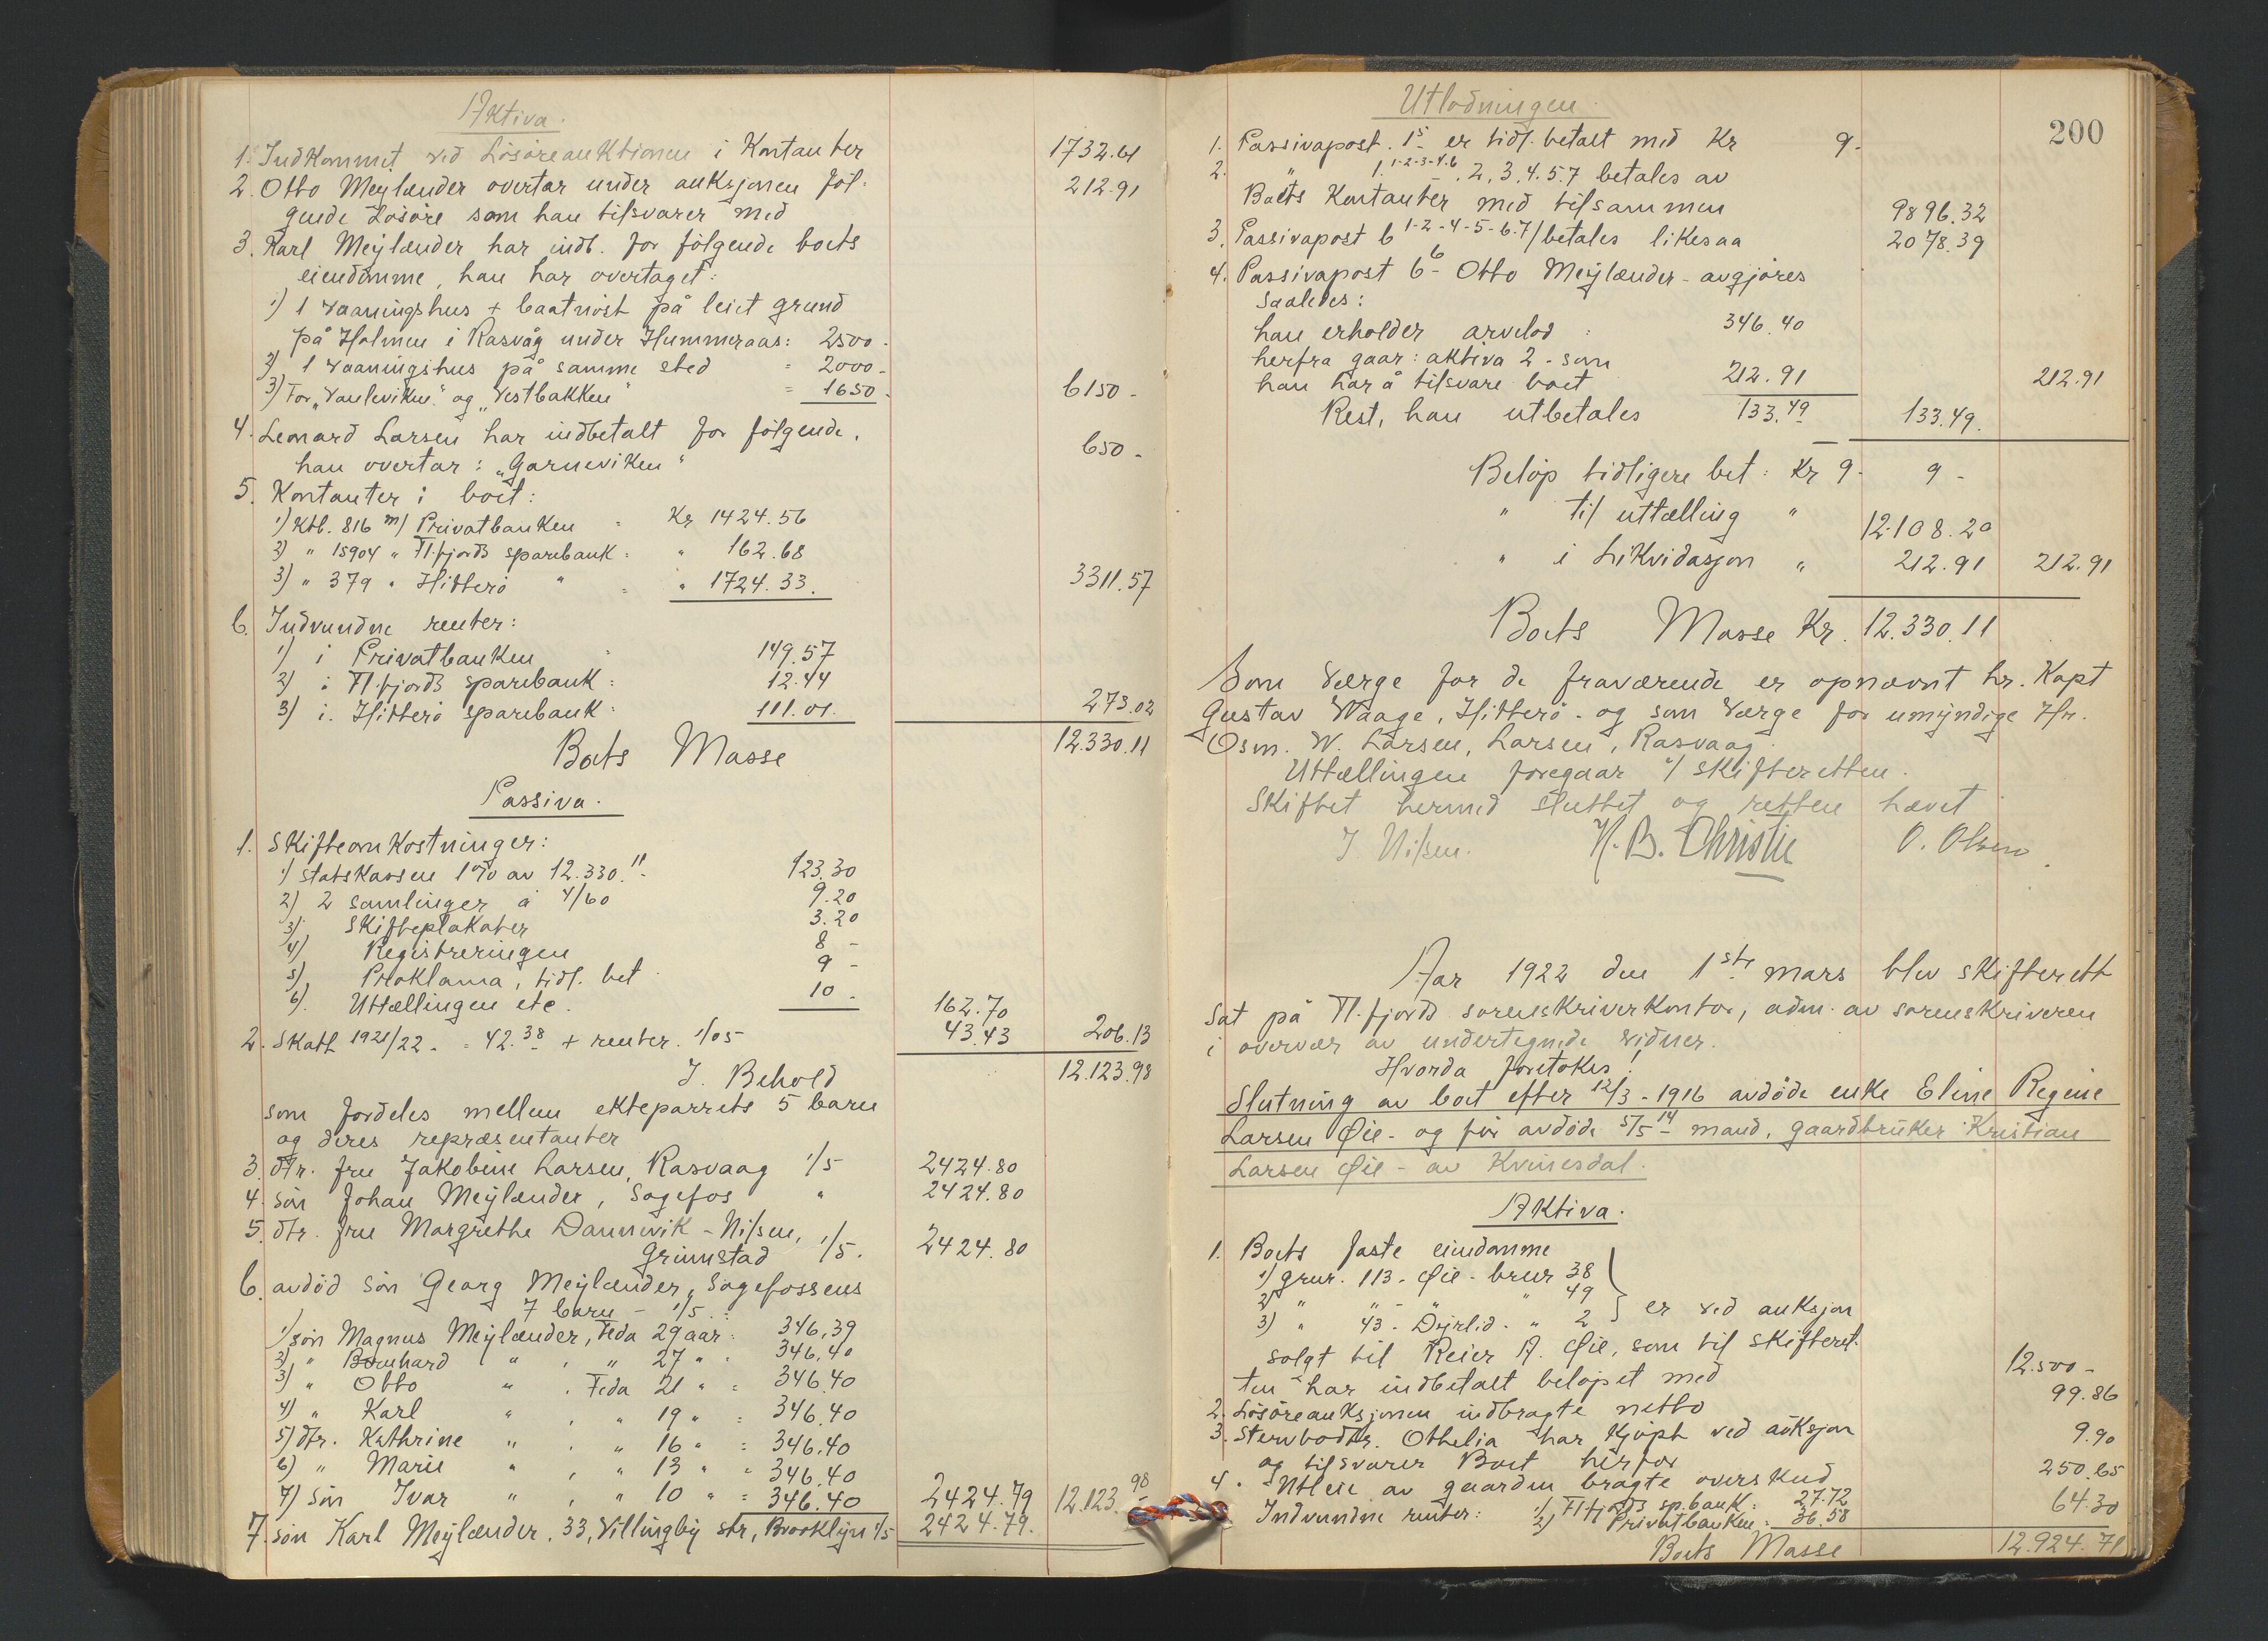 Aktiva.
1. Indkommet ved Løsøreauktionen i Kontanter 1732.61
2. Otto Meylænder overtar under auksjonen føl- 212.91
gende Løsøre som han tilsvarer med
3. Karl Meylænder har indb. for følgende boets
eiendomme, han har overtaget:
1) 1 Vaaningshus + baatnøst på leiet grund
på Holmen i Rasvåg under Hummeraas: 2500.
2) 1 Vaaningshus på samme sted = 2000-
3) For „Vauleviken" og „Vestbakken" = 1650. 6150-
4. Leonard Larsen har indbetalt for følgende,
han overtar: „Garneviken" 650-
5. Kontanter i boet:
1) Ktb. 816 m/ Privatbanken = Kr 1424.56
2) " 15904 " Fl.fjords sparebank: " 162.68
3) " 379 " Hitterø " = " 1724.33. 3311.57
6. Indvundne renter:
1) i Privatbanken 149.57
2) i Fl.fjords sparebank: 12.44
3) i. Hitterø sparebank: 111.01. 273.02
Boets Masse 12.330.11
Passiva.
1. Skifteomkostninger:
1) Statskassen 1% av 12.330.11- 123.30
2) 2 samlinger à 4/60 9.20
3) Skifteplakater 3.20
4) Registreringen 8 -
5) Proklama, tidl. bet 9 -
6). Uttællingen etc. 10 - 162.70
2. Skatt 1921/22 - = 42.38 + renter. 1/05 43.43 206.13
I. Behold 12.123.98
som fordeles mellem ekteparrets 5 barn
og deres repræsentanter
3. dtr. fru Jakobine Larsen, Rasvaag 1/5 2424.80
4. søn Johan Meylænder, Sagefos " 2424.80
5. dtr. fru Margrethe Dannevik - Nilsen,
Grimstad 1/5. 2424.80
6. avdød søn Georg Meylænder, Sagefossens
7 barn - 1/5.:
1) søn Magnus Meylænder, Feda 29 aar: 346.39
2) " Bernhard " , " 27 " = 346.40
3) " Otto " , Feda 21 " = 346.40
4) " Karl " , " 19 " = 346.40
5) dtr. Kathrine " , " 16 " = 346.40
6) " Marie " , " 13 " = 346.40
7) søn Ivar " , " 10 " = 346.40 2424.79 12.123.98
7. søn Karl Meylænder, 33, Villingby str, Brooklyn 1/5 2424.79.
200
Utlodningen.
1. Passivapost. 1 5- er tidl. betalt med Kr 9.
2. " 1. 1-2-3-4-6 - . 2, 3, 4. 5. 7 betales av
Boets Kontanter med tilsammen 9896.32
3. Passivapost 6 1-2-4-5-6-7/ betales likesaa 2078.39
4. Passivapost 6 6- Otto Meylænder - avgjøres
saaledes:
han erholder arvelod : 346.40
herfra gaar: aktiva 2 - som
han har å tilsvare boet 212.91 212.91
Rest, han utbetales 133.49 133.49.
Beløp tidligere bet: Kr 9- 9 -
" til uttælling " 12.108.20
" i Likvidasjon " 212.91 212.91
Boets Masse Kr. 12.330.11
Som Værge for de fraværende er opnævnt hr. Kapt
Gustav Waage, Hitterø - og som Værge for umyndige Hr.
Osm. W. Larsen, Larsen, Rasvaag.
Uttællingen foregaar v/ skifteretten.
Skiftet hermed sluttet og retten hævet
J. Nilsen. H. B. Christie O. Olsen.
Aar 1922 den 1ste mars blev skifterett
sat på Fl.fjords sorenskriverkontor, adm. av sorenskriveren
i overvær av undertegnede vidner.
Hvorda foretokes!
Slutning av boet efter 12/3-1916 avdøde enke Eline Regine
Larsen Øie - og før avdøde 5/5 14- mand, gaardbruker Kristian
Larsen Øie - av Kvinesdal.
Aktiva.
1. Boets faste eiendomme
1) grnr. 113 - Øie - brnr 38
2) " " - " " 49
3) " 43 - Dyrlid - " 2 } er ved auksjon
solgt til Reier A. Øie, som til skifteret-
ten har indbetalt beløpet med 12.500-
2. Løsøreauksjonen indbragte netto 99.86
3. Stervbodtr. Othelia har kjøpt ved auksjon
og tilsvarer Boet herfor 9.90
4. Utleie av gaarden bragte overskud 250.65
Indvundne renter: 1) Fl.fjords sp.bank: 27.72
2) Privatbanken = 36.58 64.30
Boets Masse 12.924.71